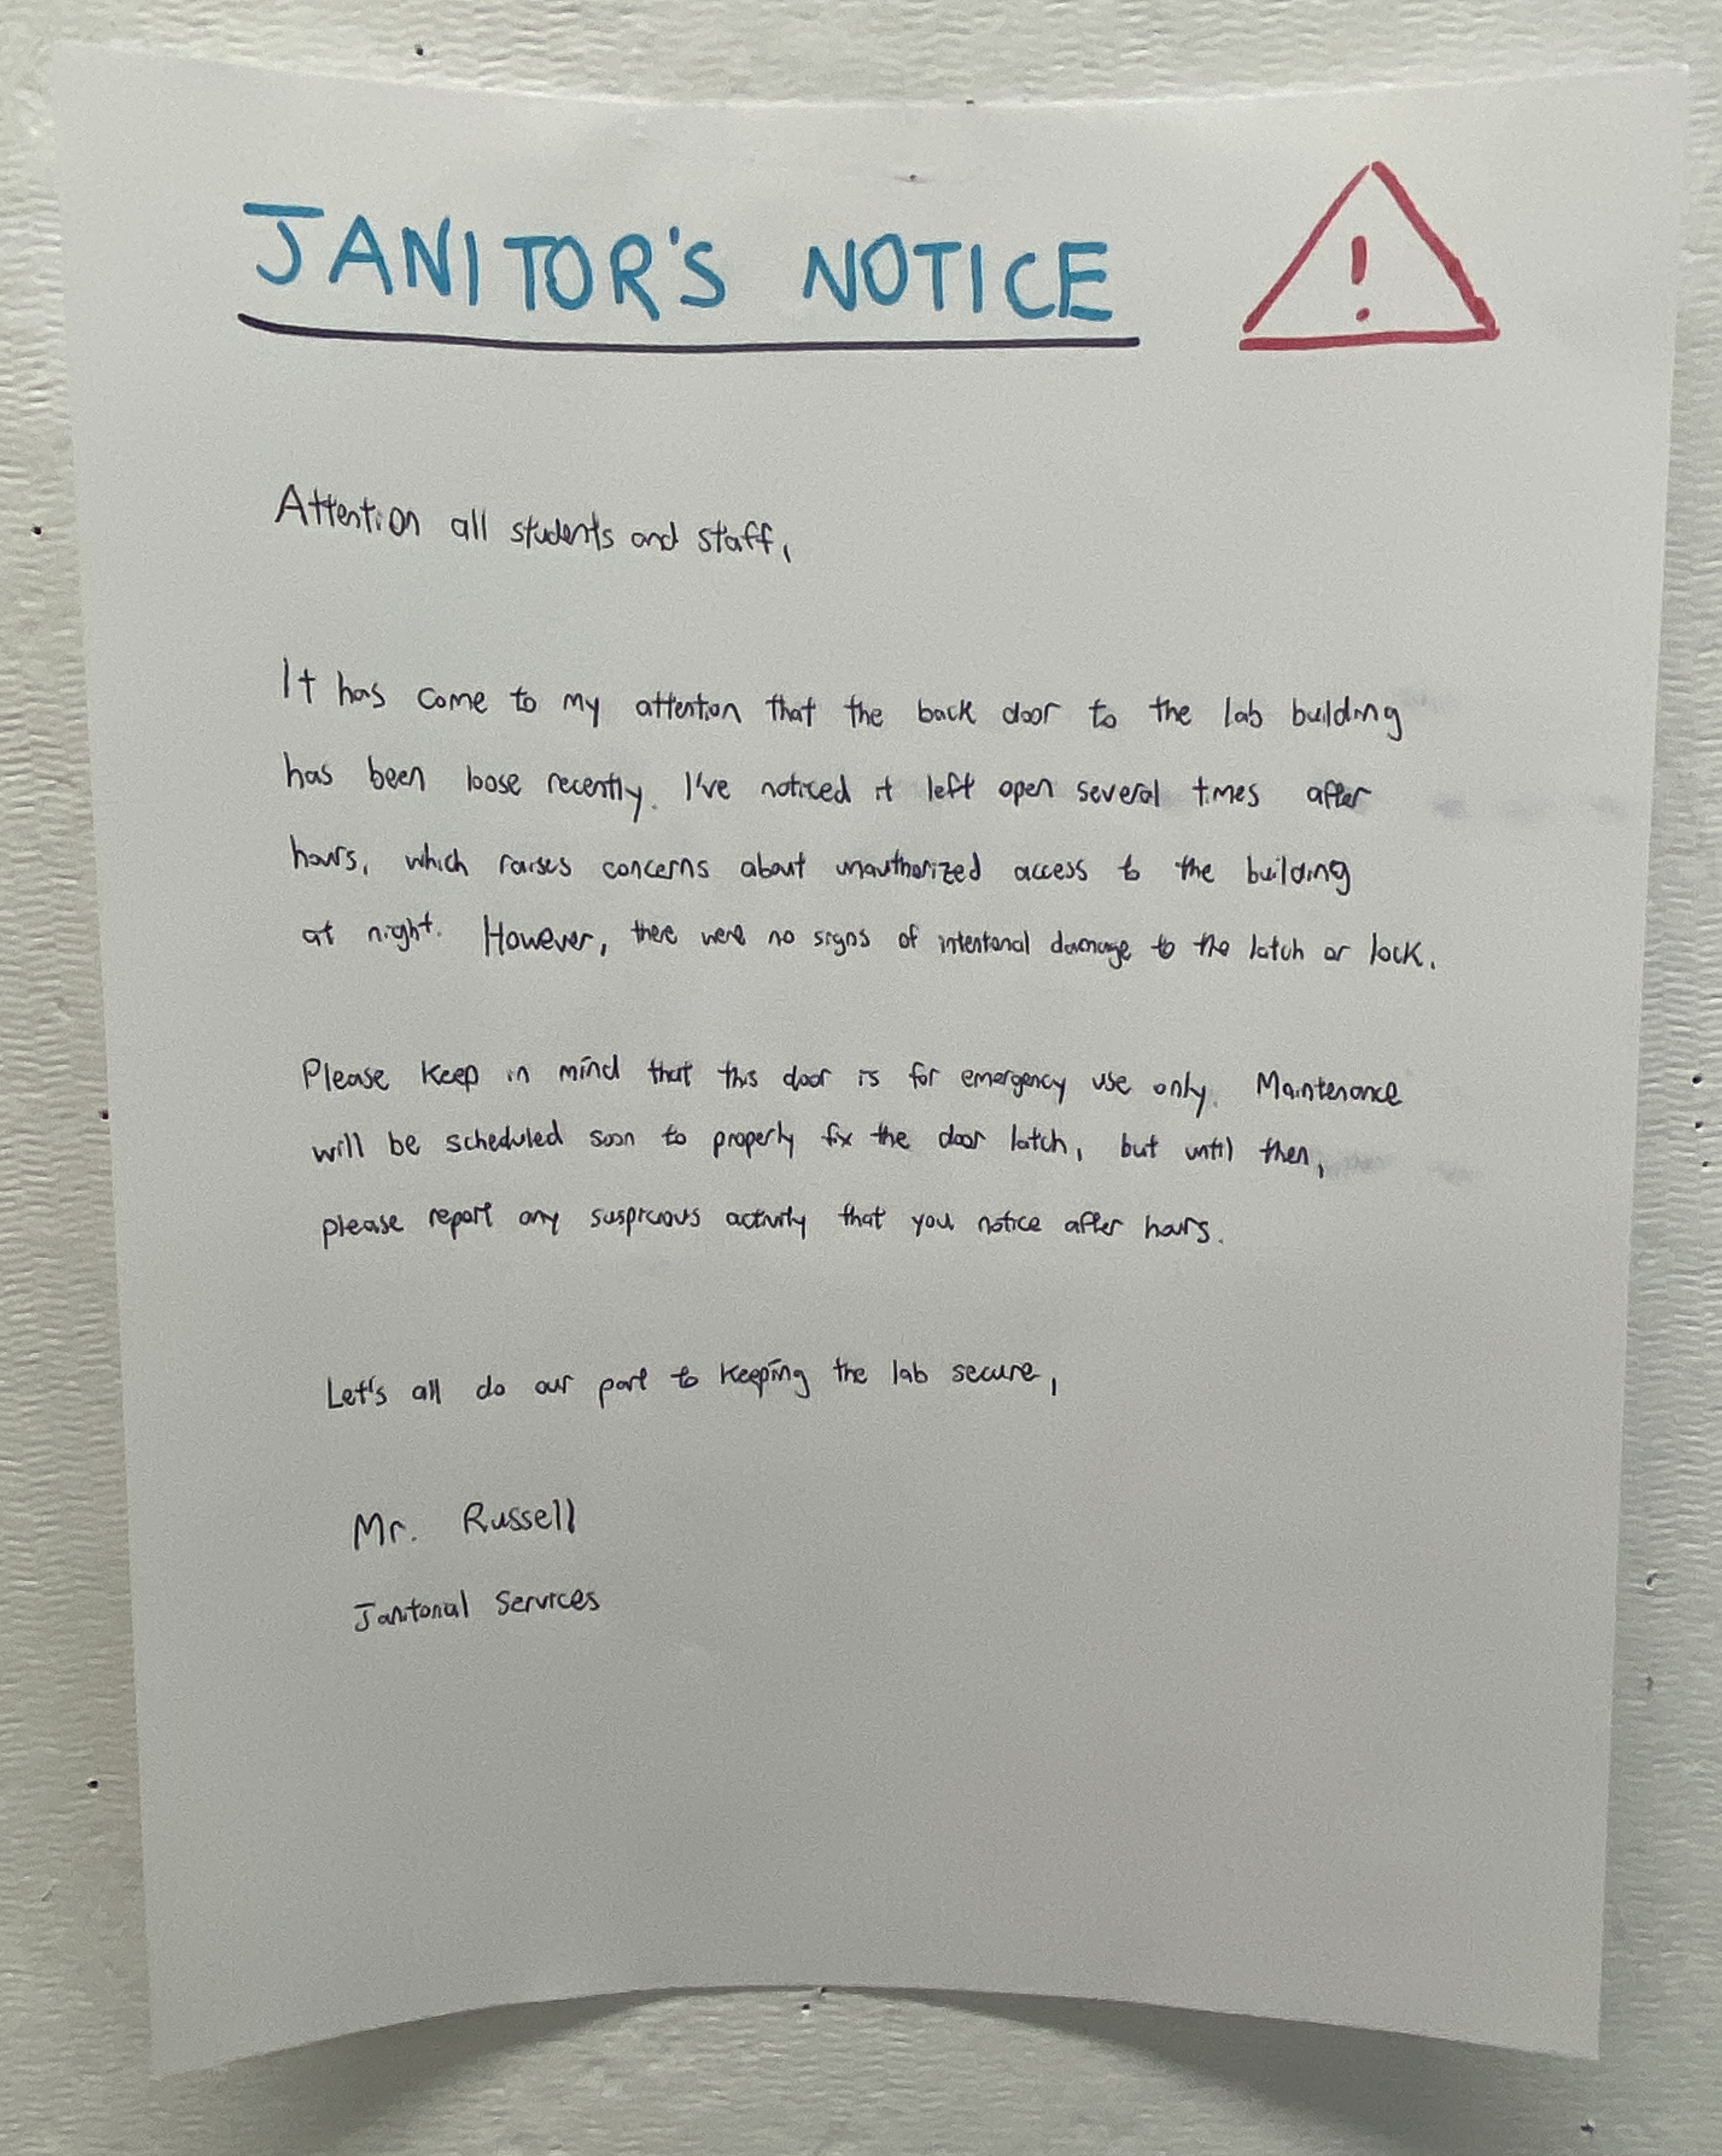 JANITOR'S NOTICE !
Attention all students and staff,
It has come to my attention that the back door to the lab building
has been loose recently. I've noticed it left open several times after
hours, which raises concerns about unauthorized access to the building
at night. However, there were no signs of intentional damage to the latch or lock.
Please keep in mind that this door is for emergency use only. Maintenance
will be scheduled soon to properly fix the door latch, but until then,
please report any suspicious activity that you notice after hours.
Let's all do our part to keeping the lab secure,
Mr. Russell
Janitorial Services